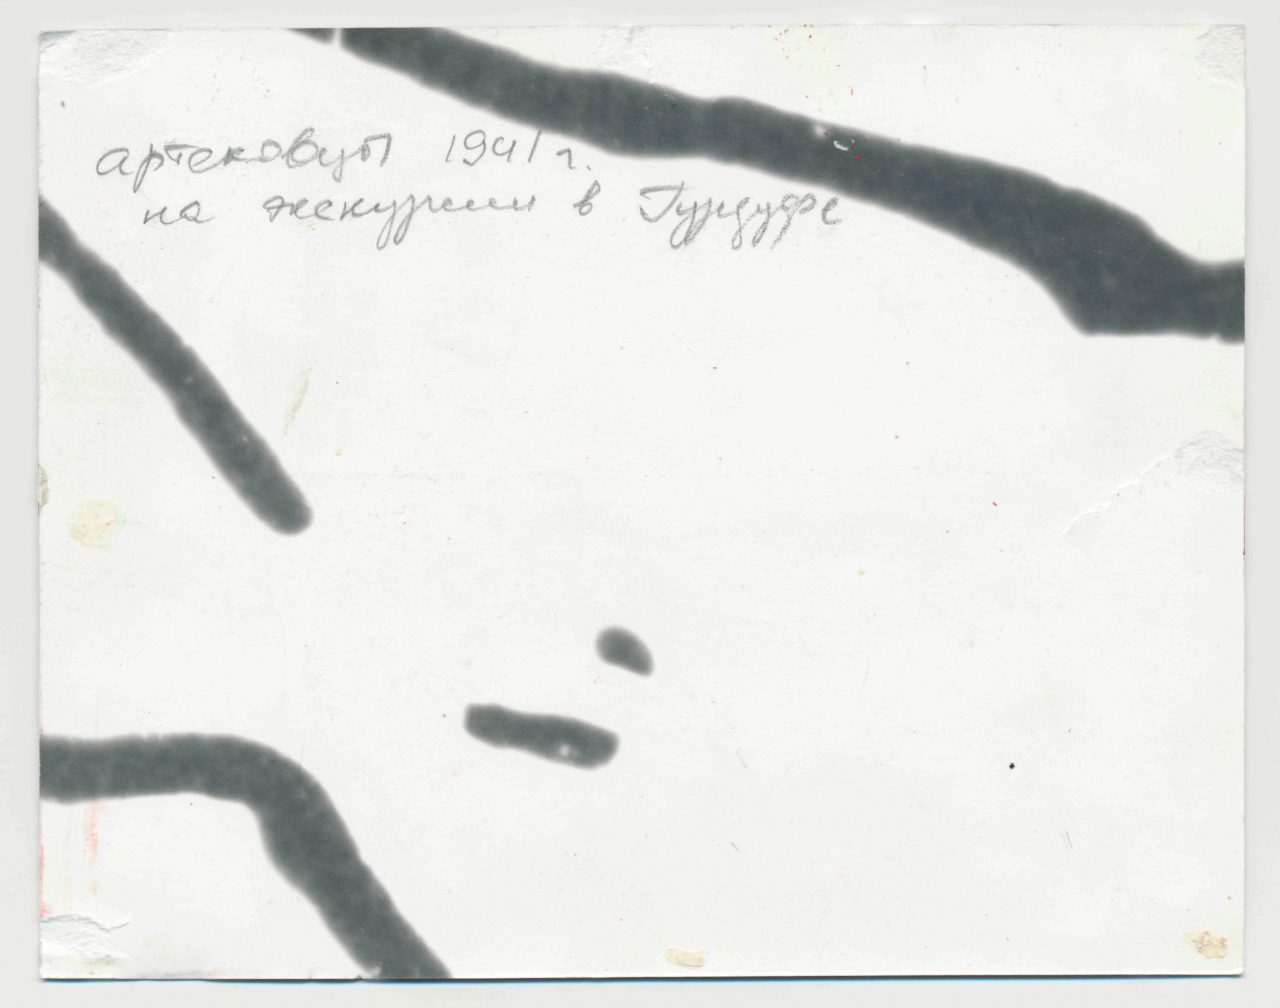 артековцы 1941 г.
на экскурсии в Гурзуфе